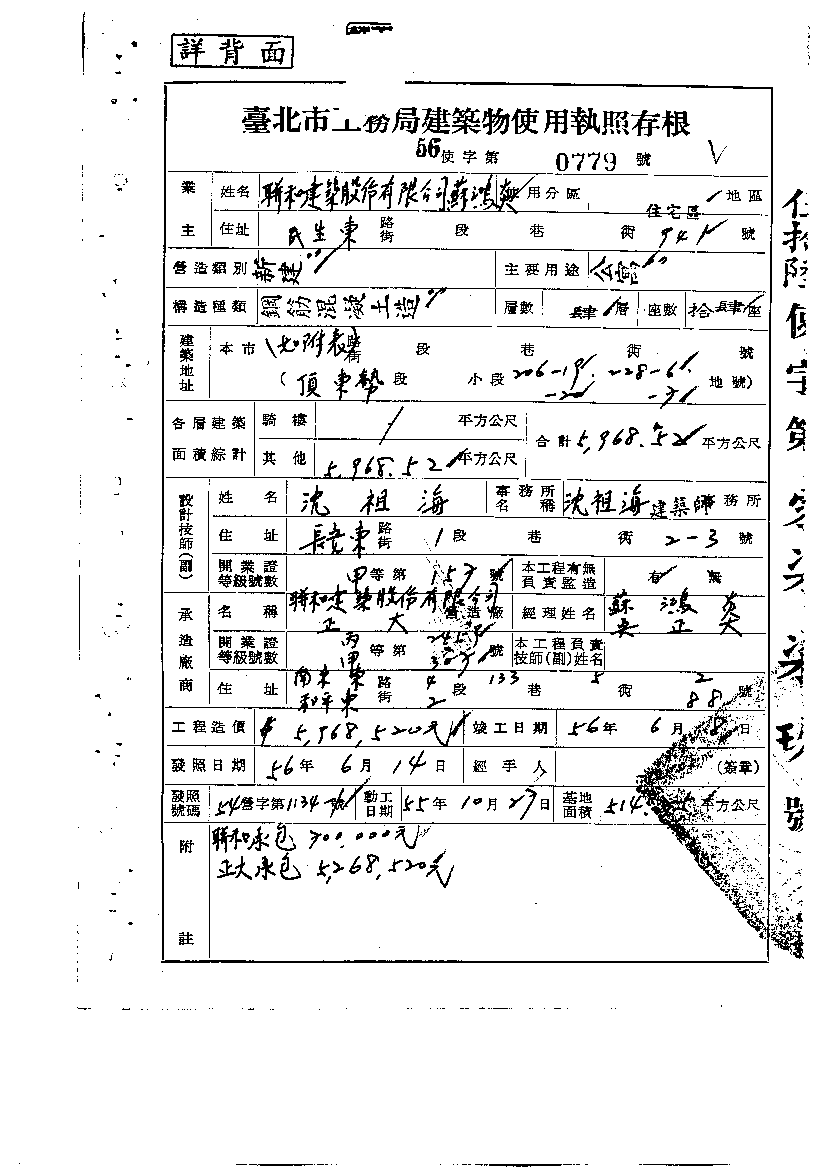 詳背面
臺北市工務局建築物使用執照存根
56使字第 0779 號 V
業主 姓名 聯和建築股份有限公司蘇鴻炎 使用分區 住宅區 地區
住址 民生東 路街 段 巷 街 941 號
營造類別 新建 主要用途 公寓
構造種類 鋼筋混凝土造 層數 肆層 座數 拾肆座
建築地址 本市(如附表) 路街 段 巷 街 號
(頂東勢段 小段 206-19 228-61 地號)
-20 -31
各層建築面積綜計 騎樓 / 平方公尺 合計 5,968.52 平方公尺
其他 5,968.52 平方公尺
設計技師(副) 姓名 沈祖海 事務所名稱 沈祖海建築師事務所
住址 長安東 路街 1段 巷 街 2-3 號
開業證等級號數 甲等第 157 號 本工程有無負責監造 有 無
承造廠商 名稱 聯和建築股份有限公司 經理姓名 蘇鴻炎
正大 營造廠 吳正大
開業證等級號數 丙 甲 等第 號 本工程負責技師(副)姓名
住址 南京東 路 4 段 133 巷 5 街 2 號
和平東 街 2 88
工程造價 $5,968,520元 竣工日期 56年 6月 8日
發照日期 56年 6月 14日 經手人 (簽章)
發照號碼 54營字第1134號 動工日期 55年 10月 27日 基地面積 514. 平方公尺
附註 聯和承包 700,000元
正大承包 5,268,520元
伍拾陸使字第零柒柒玖號